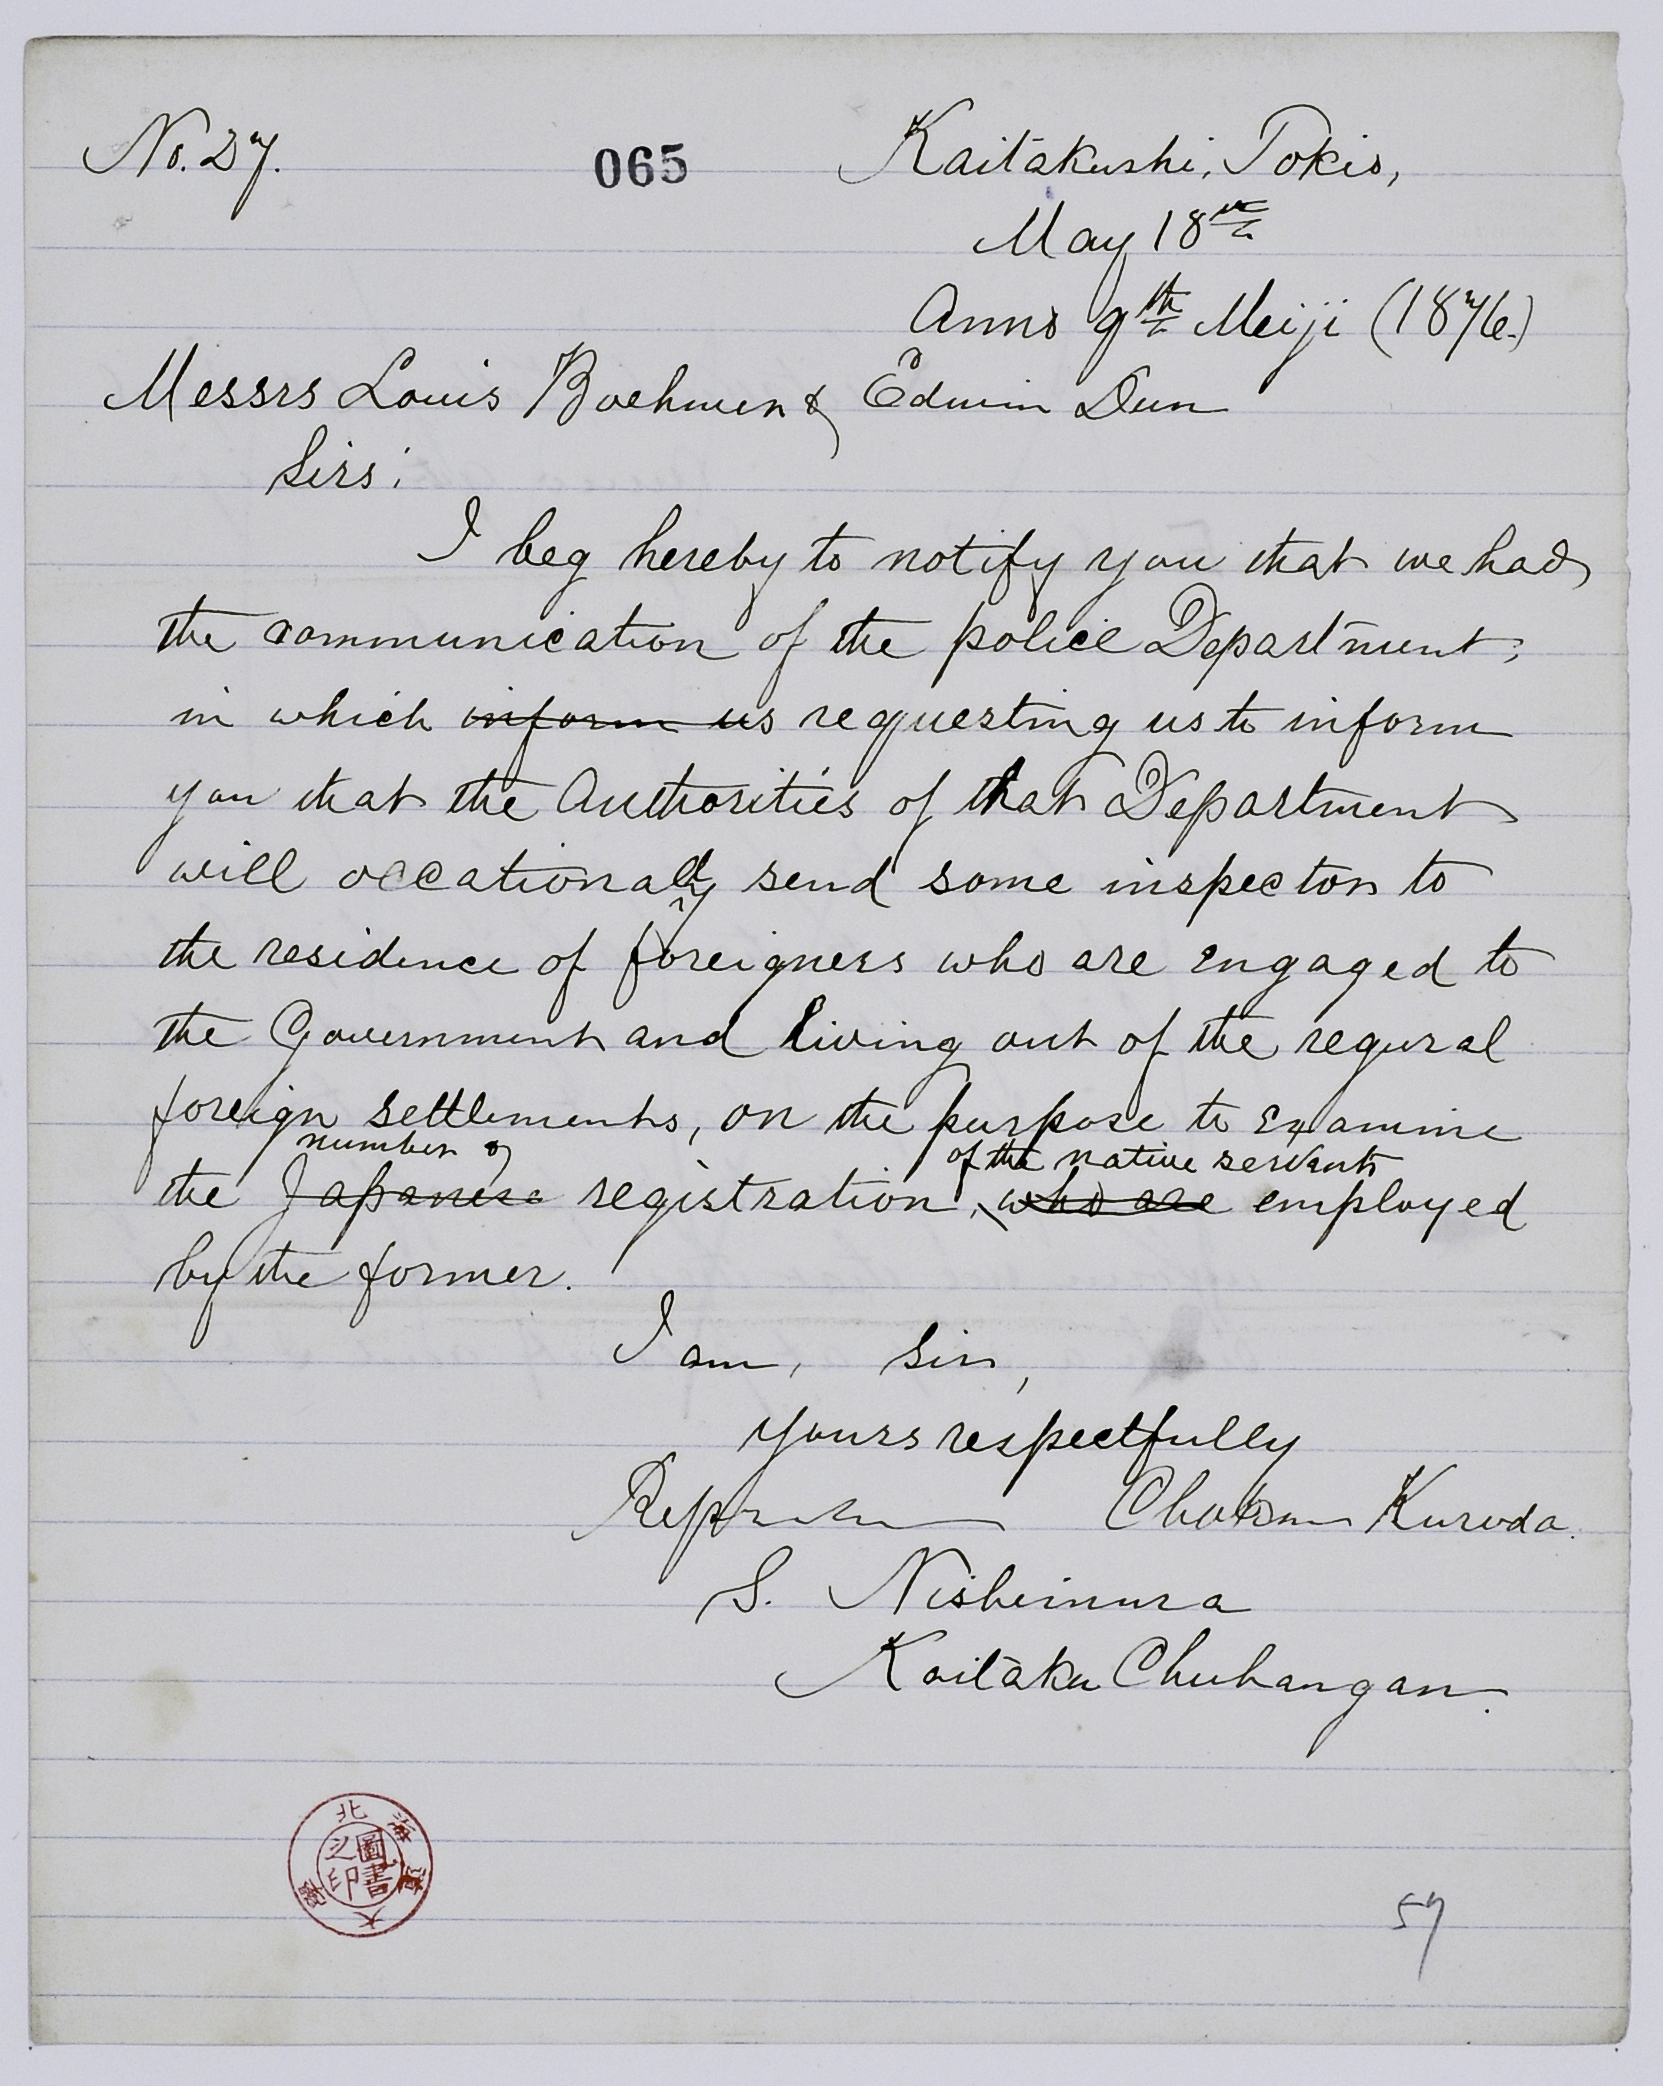 No. 27.
065
Kaitakushi, Tokio,
May 18th
Anno 9th Meiji (1876.)
Messrs Louis Boehmer & Edwin Dun
Sirs;
I beg hereby to notify you that we had
the communication of the police Department,
in which inform us requesting us to inform
you that the Authorities of that Department
will occationally send some inspector to
the residence of foreigners who are engaged to
the Government and living out of the regural
foreign settlements, on the purpose to examine
number of of the native servants
the Japanese registration, who are employed
by the former.
I am, Sir,
yours respectfully
Kuroda.
S. Nisheimura
Kaitaku Chuhangan.
北海道大學
圖書之印
57